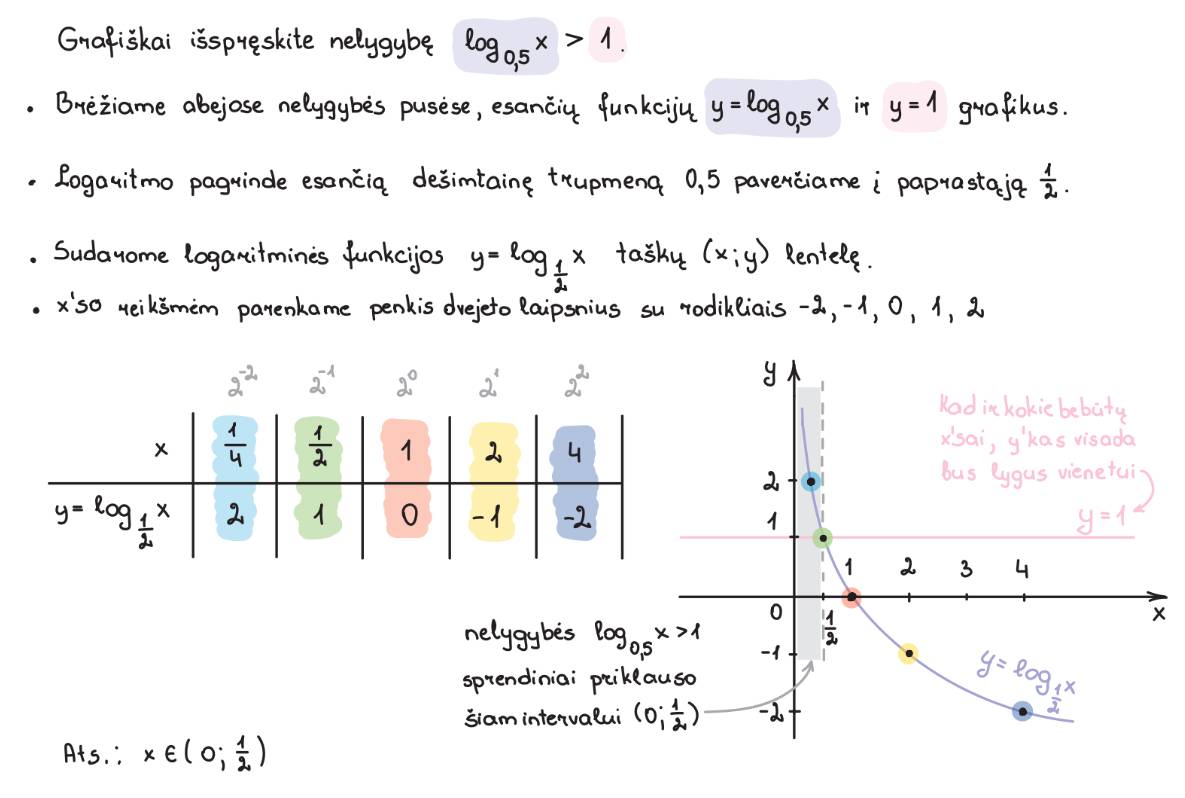 Grafiškai išspręskite nelygybę log₀,₅ x > 1.
• Brėžiame abejose nelygybės pusėse, esančių funkcijų y = log₀,₅ x ir y = 1 grafikus.
• Logaritmo pagrinde esančią dešimtainę trupmeną 0,5 paverčiame į paprastąją 1/2.
• Sudarome logaritminės funkcijos y = log_{1/2} x taškų (x; y) lentelę.
• x'so reikšmėm parenkame penkis dvejeto laipsnius su rodikliais -2, -1, 0, 1, 2
2⁻² 2⁻¹ 2⁰ 2¹ 2²
x 1/4 1/2 1 2 4
y = log_{1/2} x 2 1 0 -1 -2
y
Kad ir kokie bebūtų
x'sai, y'kas visada
bus lygus vienetui
y = 1
2
1
1 2 3 4
0
1/2
x
-1
-2
y = log_{1/2} x
nelygybės log₀,₅ x > 1
sprendiniai priklauso
šiam intervalui (0; 1/2)
Ats.: x ∈ (0; 1/2)